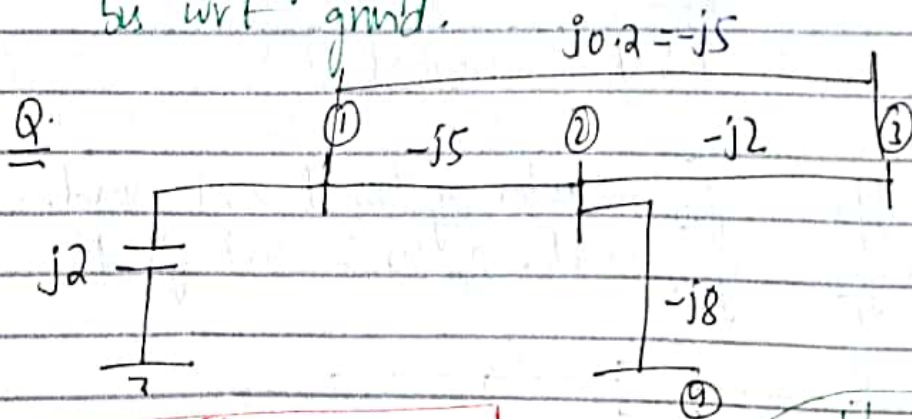 bus wrt grind.
j0.2 = -j5
Q.
① -j5 ② -j2 ③
j2
-j8
⑨